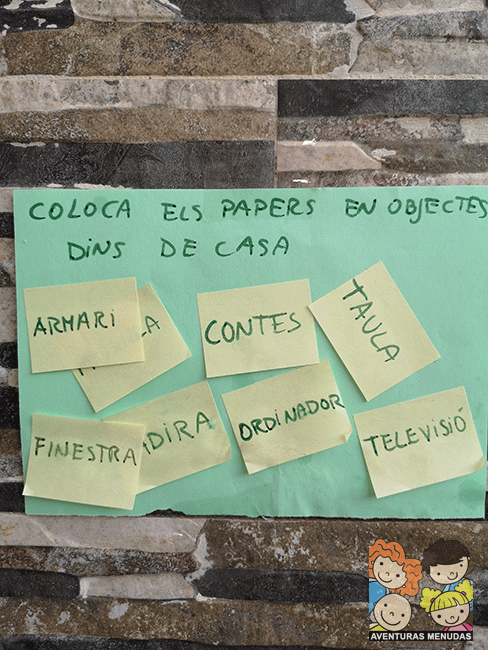 COLOCA ELS PAPERS EN OBJECTES
DINS DE CASA
ARMARI
CONTES
TAULA
FINESTRA
ORDINADOR
TELEVISIÓ
AVENTURAS MENUDAS